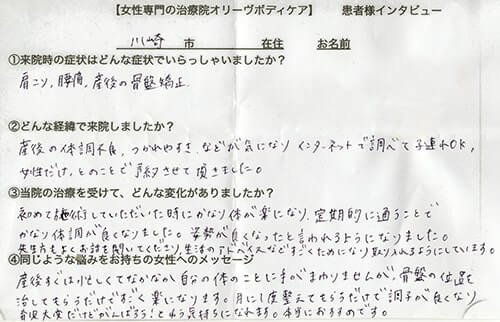 【女性専門の治療院オリーヴボディケア】 患者様インタビュー
川崎 市 在住 お名前
①来院時の症状はどんな症状でいらっしゃいましたか？
肩こり，腰痛，産後の骨盤矯正
②どんな経緯で来院しましたか？
産後の体調不良，つかれやすさ，などが気になり インターネットで調べて子連れOK，
女性だけ，とのことで予約させて頂きました。
③当院の治療を受けて、どんな変化がありましたか？
初めて施術していただいた時にかなり体が楽になり，定期的に通うことで
かなり体調が良くなりました。姿勢が良くなったと言われるようになりました。
先生方もよくお話を聞いてくださり，生活のアドバイスなどすごくためになり取り入れるようにしています。
④同じような悩みをお持ちの女性へのメッセージ
産後すぐは忙しくてなかなか自分の体のことに手がまわりませんが，骨盤の位置を
治してもらうだけですごく楽になります。月に1度整えてもらうだけで調子が良くなり
育児大変だけどがんばろう！という気持ちになれます。本当におすすめです。